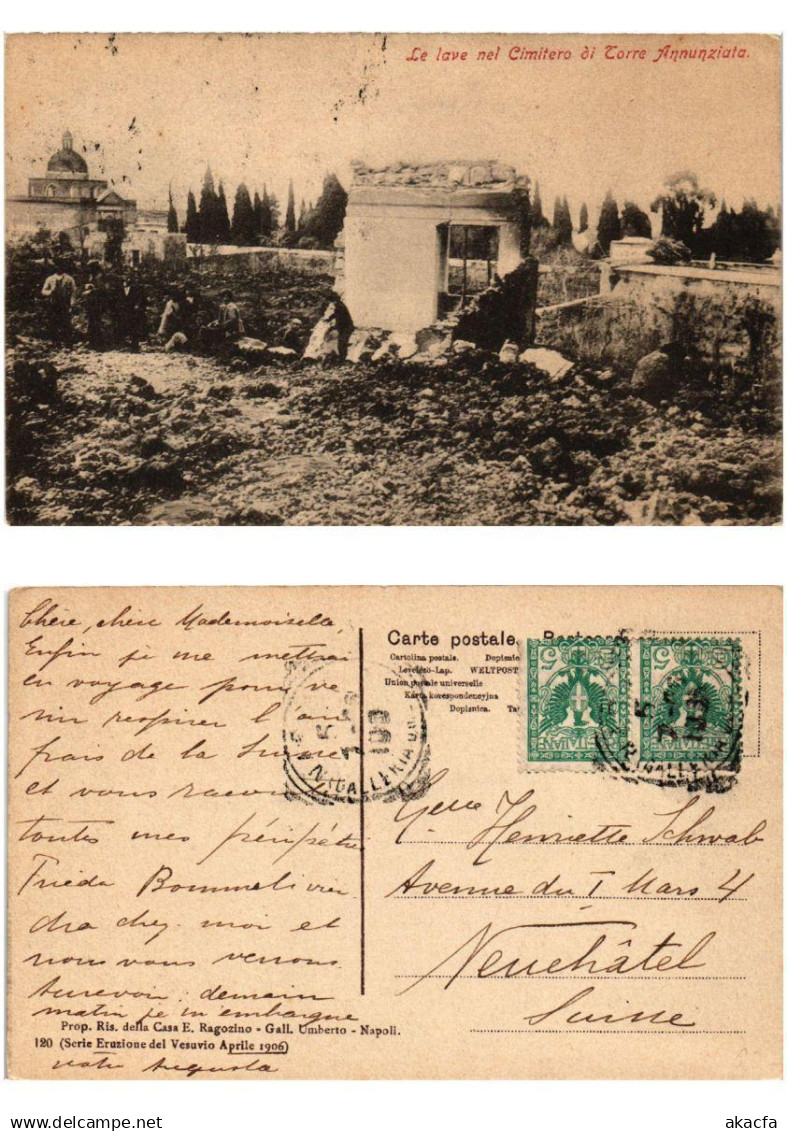 Le lave nel Cimitero di Torre Annunziata.
Chère, chère Mademoiselle,
Enfin je me mettrai
en voyage pour ve
nir respirer l'air
frais de la Suisse
et vous racon
toutes mes péripéties
Frieda Bommeli vien
dra chez moi et
nous vous verrons.
Aurevoir, demain
matin je m'embarque
votre Augusta
Prop. Ris. della Casa E. Ragozino - Gall. Umberto - Napoli.
120 (Serie Eruzione del Vesuvio Aprile 1906)
Carte postale.
Cartolina postale. Dopisnie
Levelező-Lap. WELTPOST
Union postale universelle
Karta korespondencyjna
Dopisnica.
5 5
GALLERIA
Henriette Schwab
Avenue du I Mars 4
Neuchâtel
Suisse
www.delcampe.net
akacfa